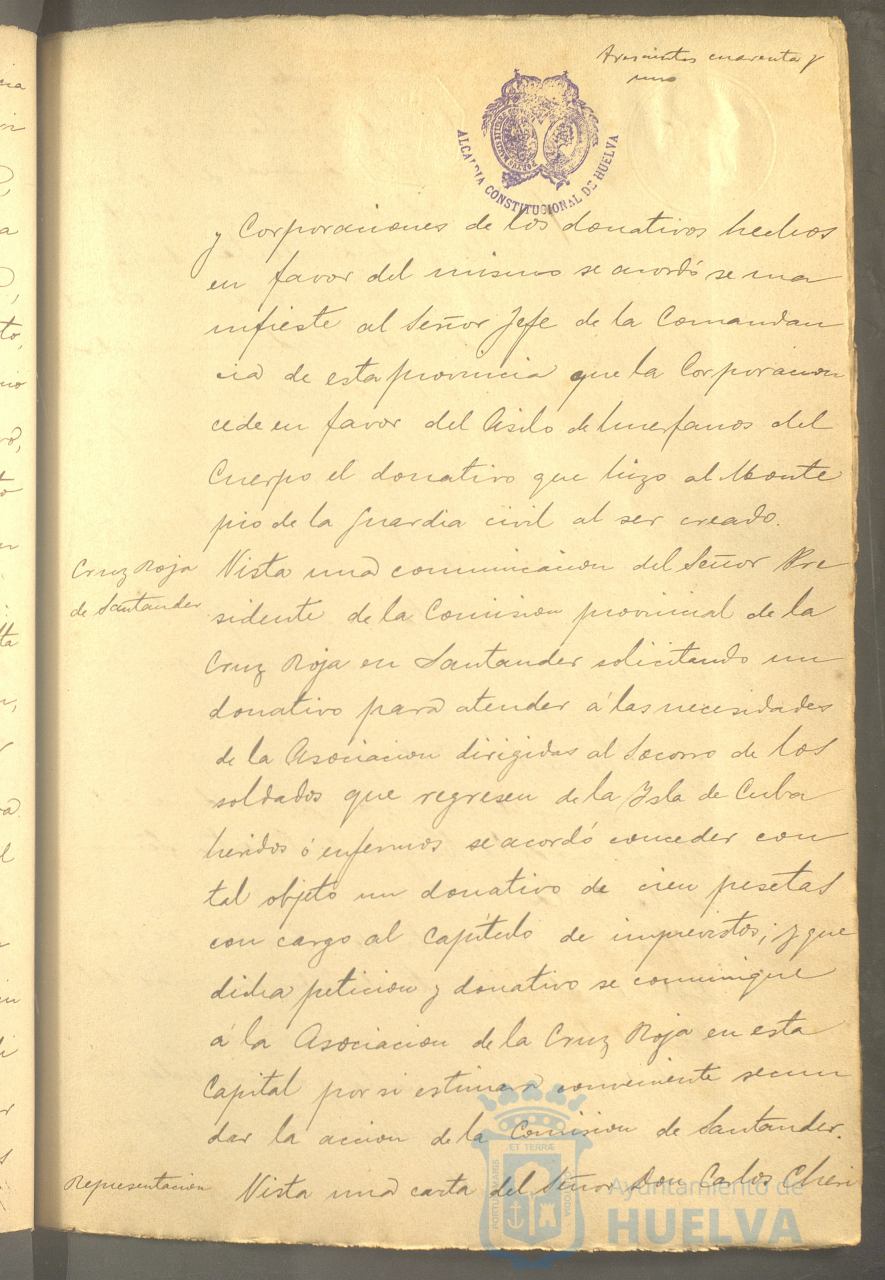 Trescientos cuarenta y
uno
ALCALDIA CONSTITUCIONAL DE HUELVA
y Corporaciones de los donativos hechos
en favor del mismo se acordó se ma
nifieste al Señor Jefe de la Comandan
cia de esta provincia que la Corporacion
cede en favor del Asilo de huerfanos del
Cuerpo el donativo que hizo al Monte
pio de la Guardia civil al ser creado.
Cruz Roja
de Santander
Vista una comunicacion del Señor Pre
sidente de la Comision provincial de la
Cruz Roja en Santander solicitando un
donativo para atender á las necesidades
de la Asociacion dirigidas al Socorro de los
soldados que regresen de la Ysla de Cuba
heridos ó enfermos se acordó conceder con
tal objeto un donativo de cien pesetas
con cargo al Capítulo de imprevistos; y que
dicha peticion y donativo se comunique
á la Asociacion de la Cruz Roja en esta
Capital por si estimara conveniente secun
dar la accion de la Comision de Santander.
Representacion
Vista una carta del Señor Don Carlos Cheri
PORTUS MARIS ET TERRÆ
Ayuntamiento de
HUELVA